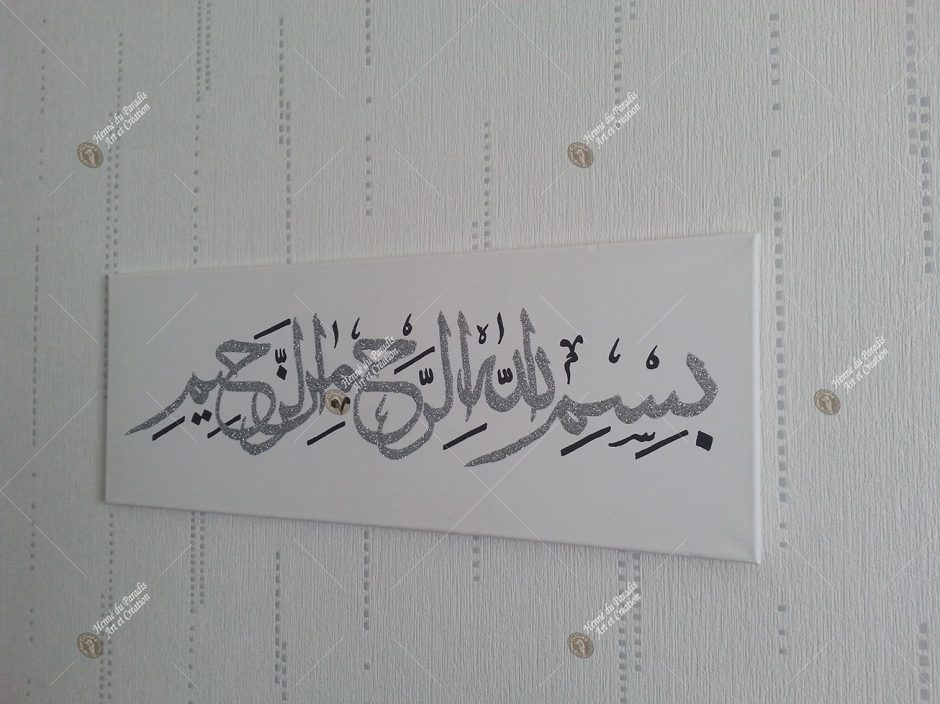 بِسْمِ اللهِ الرَّحْمٰنِ الرَّحِيمِ
Henné du Paradis
Art et Création
Henné du Paradis
Art et Création
Henné du Paradis
Art et Création
Henné du Paradis
Art et Création
Henné du Paradis
Art et Création
Henné du Paradis
Art et Création